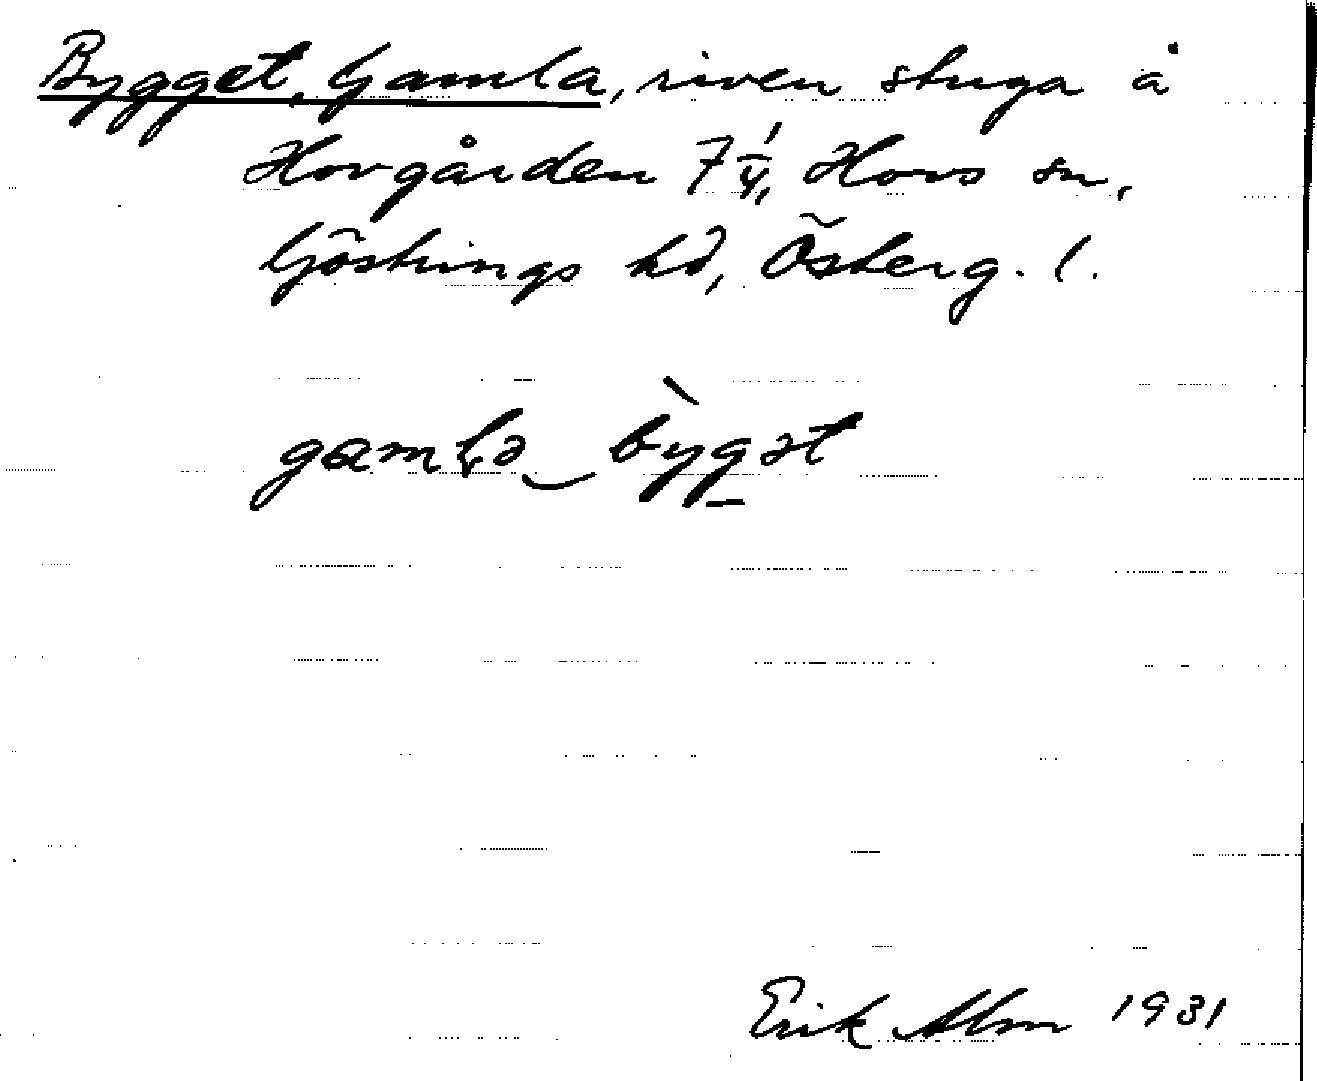 Bygget, Gamla, riven stuga å
Hovgården 7 1/4, Hovs sn,
Göstrings hd, Österg. l.
gamlə‿by̖gət
Erik Alm 1931